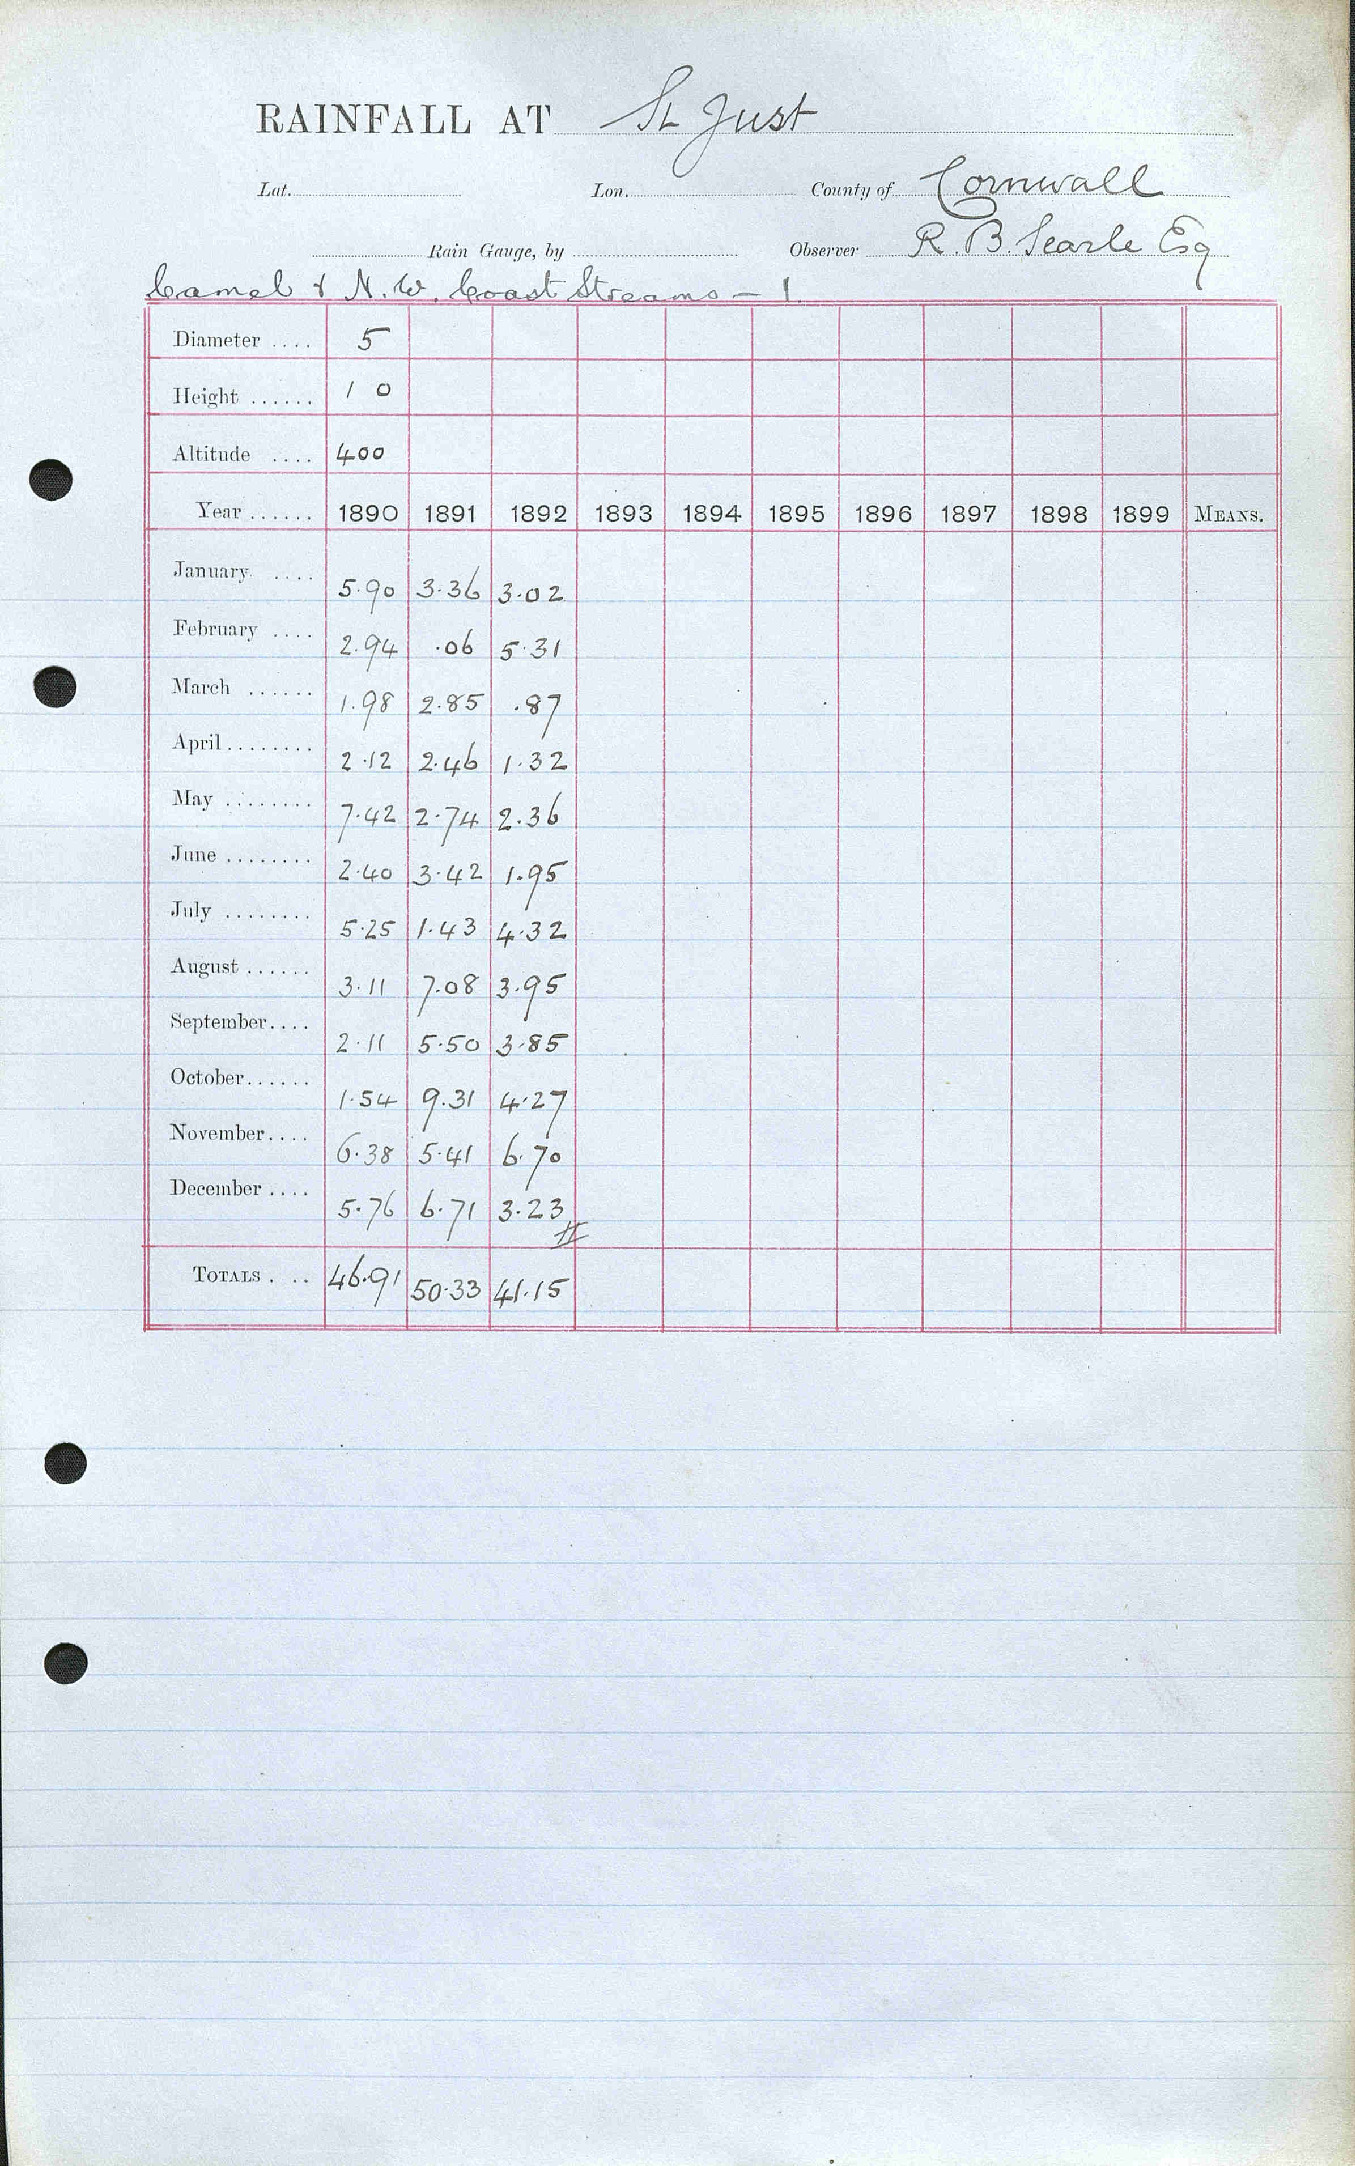 RAINFALL AT St Just
Lat. Lon. County of Cornwall
Rain Gauge, by Observer R. B. Searle Esq
Camel & N.W. Coast Streams - 1
Diameter .... 5
Height ...... 1 0
Altitude .... 400
Year ...... 1890 1891 1892 1893 1894 1895 1896 1897 1898 1899 MEANS.
January. .... 5.90 3.36 3.02
February .... 2.94 .06 5.31
March ...... 1.98 2.85 .87
April ........ 2.12 2.46 1.32
May ........ 7.42 2.74 2.36
June ........ 2.40 3.42 1.95
July ........ 5.25 1.43 4.32
August ...... 3.11 7.08 3.95
September.... 2.11 5.50 3.85
October...... 1.54 9.31 4.27
November.... 6.38 5.41 6.70
December .... 5.76 6.71 3.23
TOTALS . .. 46.91 50.33 41.15